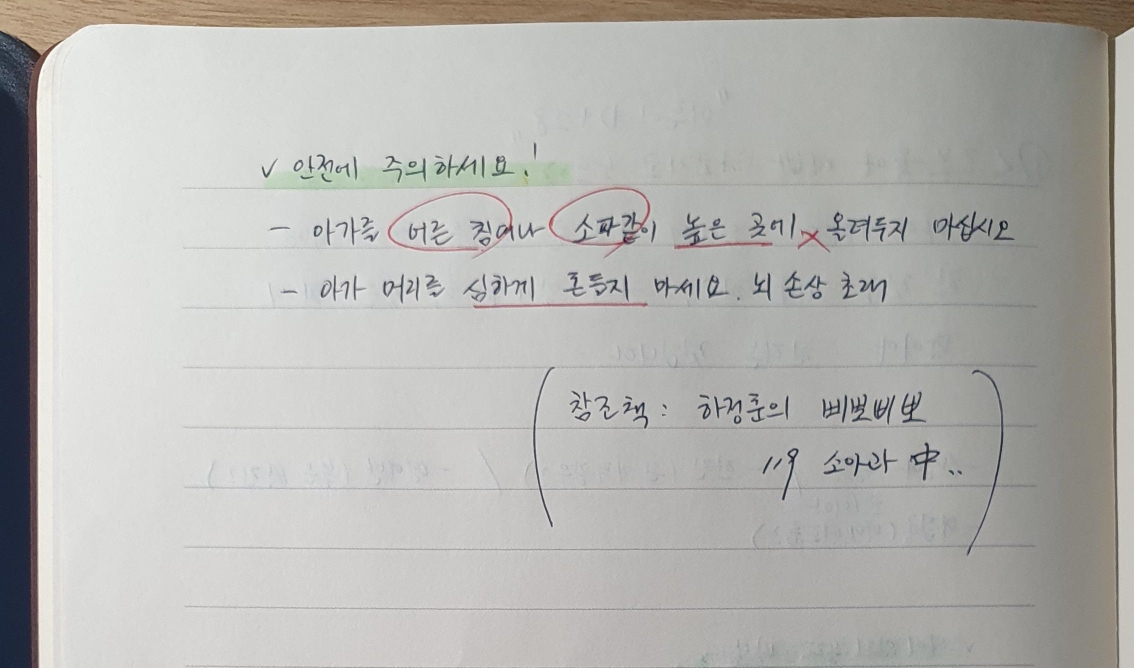 ✓ 안전에 주의하세요!
- 아가를 어른 침대나 소파같이 높은 곳에 올려두지 마십시오
- 아가 머리를 심하게 흔들지 마세요. 뇌 손상 초래
(참조책: 하정훈의 삐뽀삐뽀
119 소아과 中..)